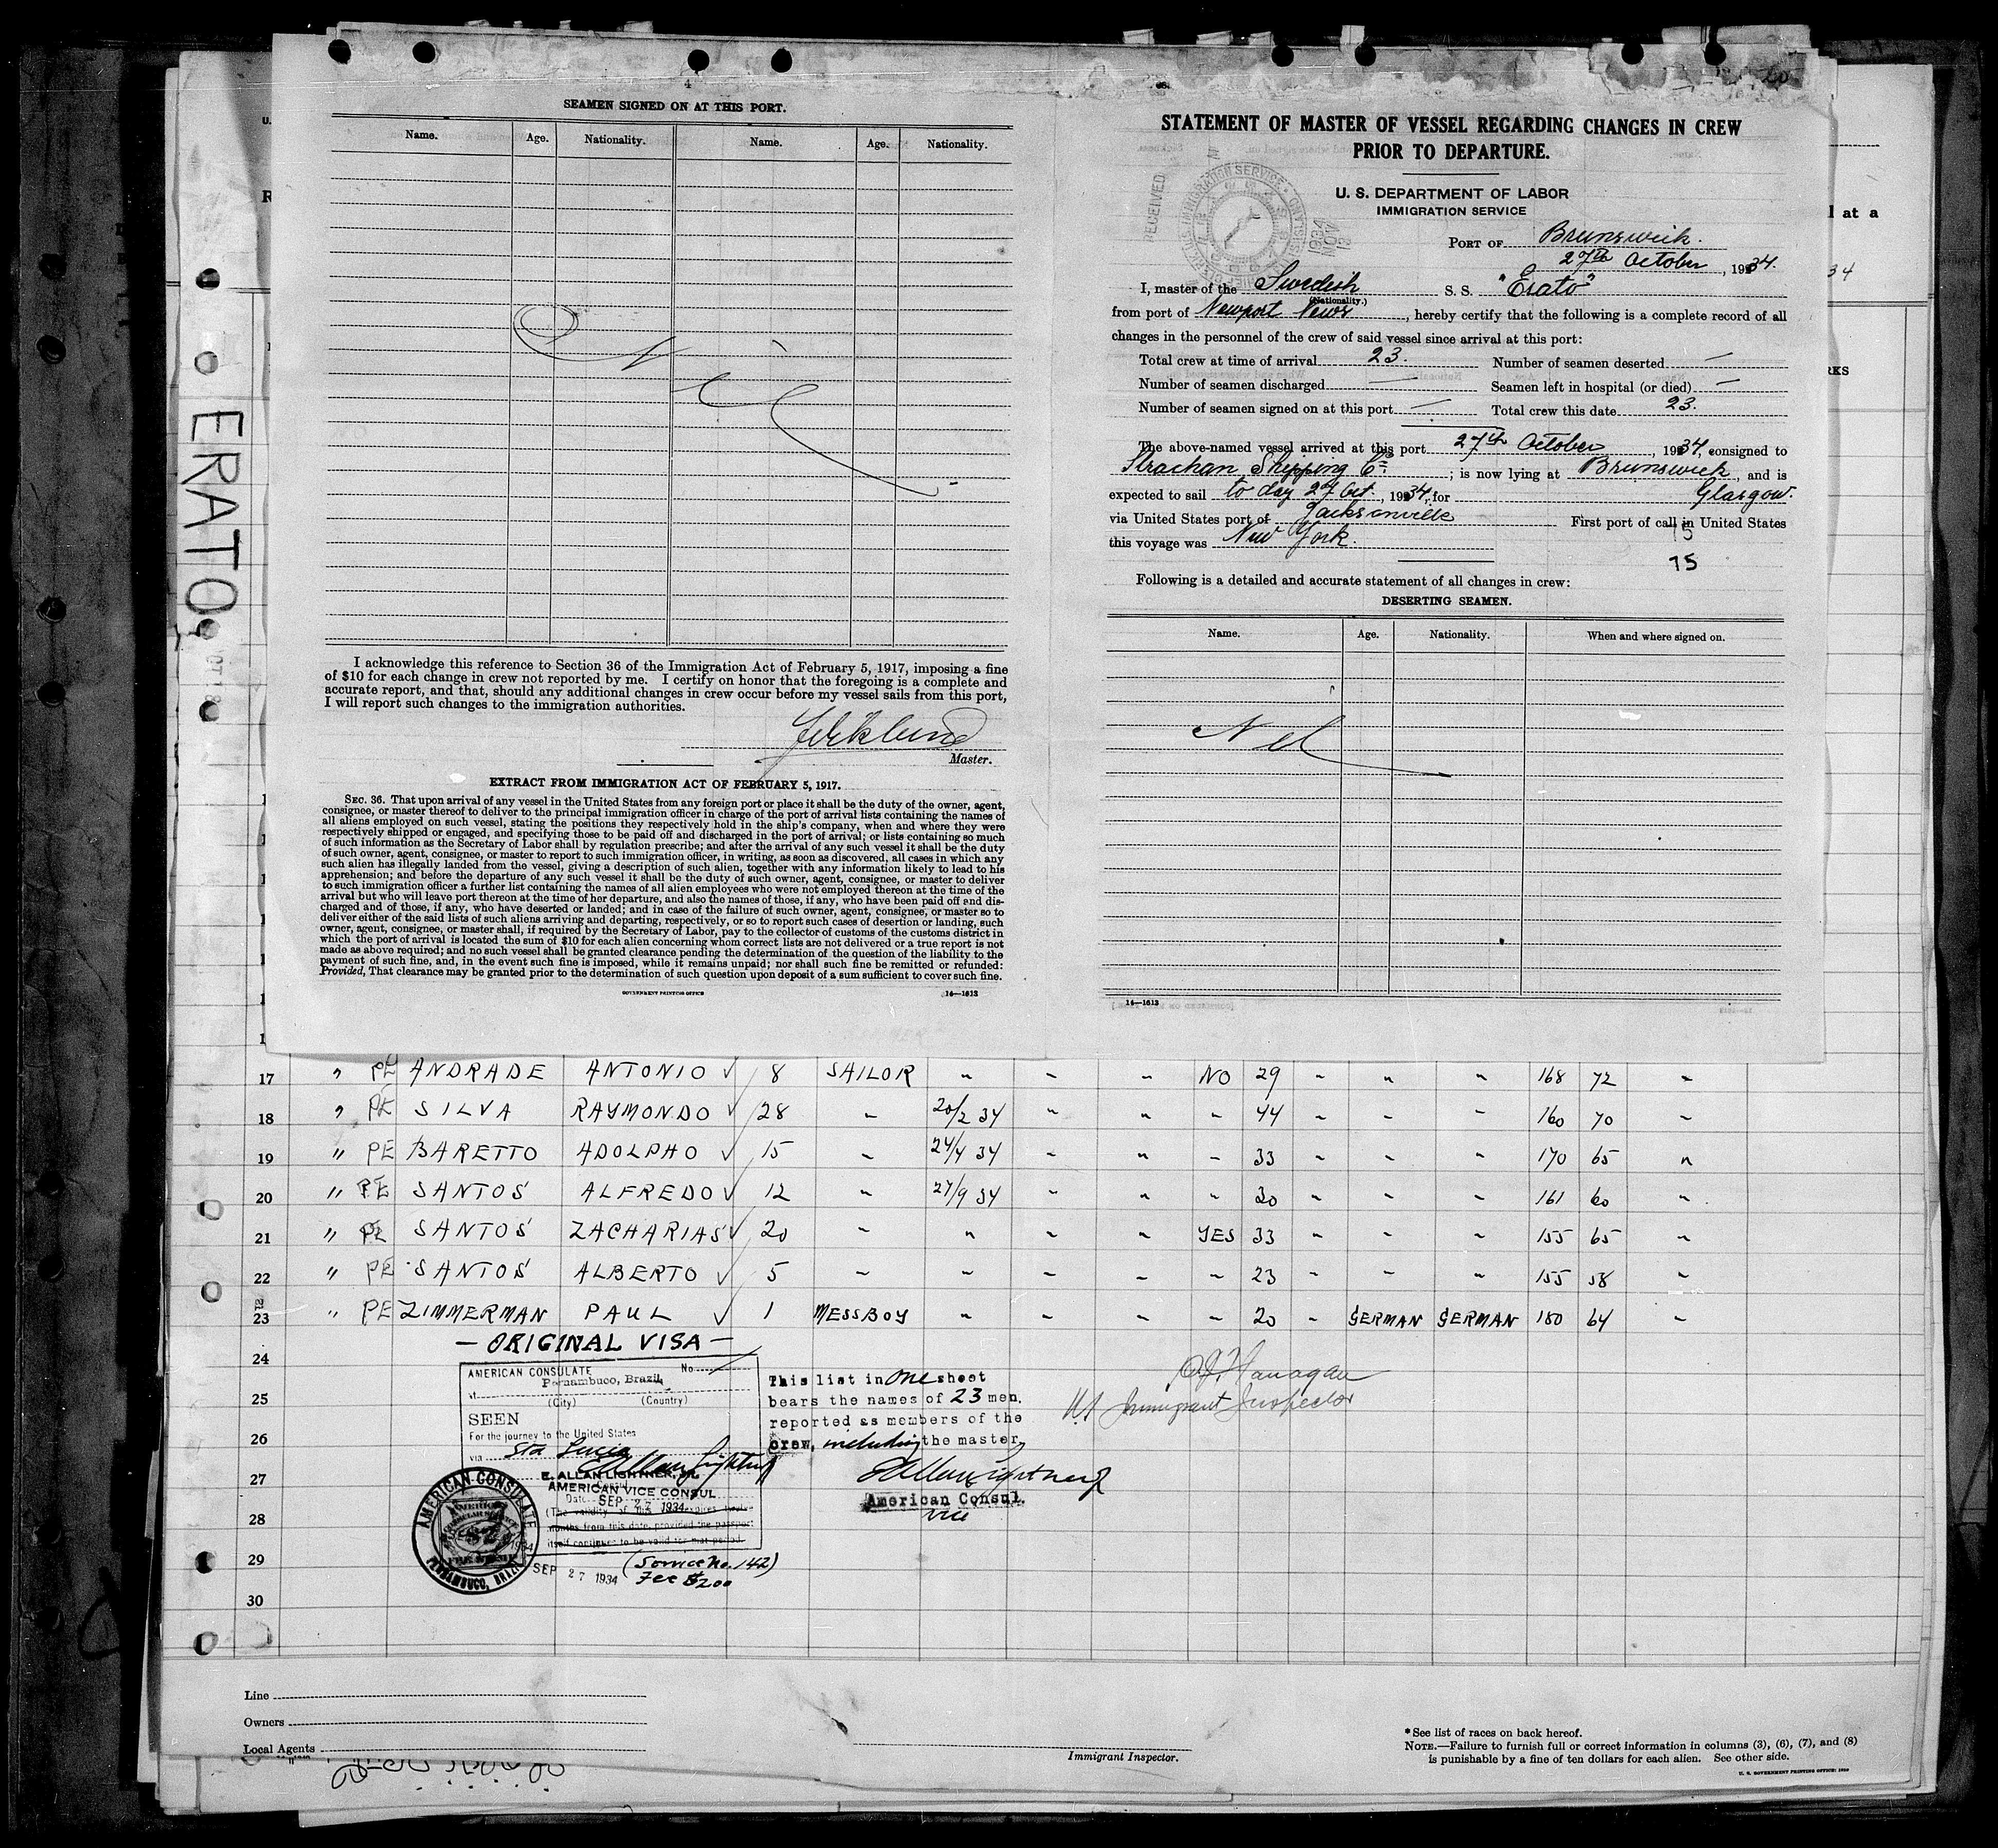 4
SEAMEN SIGNED ON AT THIS PORT.
Name. Age. Nationality. Name. Age. Nationality.
Nil
I acknowledge this reference to Section 36 of the Immigration Act of February 5, 1917, imposing a fine
of $10 for each change in crew not reported by me. I certify on honor that the foregoing is a complete and
accurate report, and that, should any additional changes in crew occur before my vessel sails from this port,
I will report such changes to the immigration authorities.
Master.
EXTRACT FROM IMMIGRATION ACT OF FEBRUARY 5, 1917.
SEC. 36. That upon arrival of any vessel in the United States from any foreign port or place it shall be the duty of the owner, agent,
consignee, or master thereof to deliver to the principal immigration officer in charge of the port of arrival lists containing the names of
all aliens employed on such vessel, stating the positions they respectively hold in the ship's company, when and where they were
respectively shipped or engaged, and specifying those to be paid off and discharged in the port of arrival; or lists containing so much
of such information as the Secretary of Labor shall by regulation prescribe; and after the arrival of any such vessel it shall be the duty
of such owner, agent, consignee, or master to report to such immigration officer, in writing, as soon as discovered, all cases in which any
such alien has illegally landed from the vessel, giving a description of such alien, together with any information likely to lead to his
apprehension; and before the departure of any such vessel it shall be the duty of such owner, agent, consignee, or master to deliver
to such immigration officer a further list containing the names of all alien employees who were not employed thereon at the time of the
arrival but who will leave port thereon at the time of her departure, and also the names of those, if any, who have been paid off and dis-
charged and of those, if any, who have deserted or landed; and in case of the failure of such owner, agent, consignee, or master so to
deliver either of the said lists of such aliens arriving and departing, respectively, or so to report such cases of desertion or landing, such
owner, agent, consignee, or master shall, if required by the Secretary of Labor, pay to the collector of customs of the customs district in
which the port of arrival is located the sum of $10 for each alien concerning whom correct lists are not delivered or a true report is not
made as above required; and no such vessel shall be granted clearance pending the determination of the question of the liability to the
payment of such fine, and, in the event such fine is imposed, while it remains unpaid; nor shall such fine be remitted or refunded:
Provided, That clearance may be granted prior to the determination of such question upon deposit of a sum sufficient to cover such fine.
GOVERNMENT PRINTING OFFICE 14—1613
STATEMENT OF MASTER OF VESSEL REGARDING CHANGES IN CREW
PRIOR TO DEPARTURE.
U. S. DEPARTMENT OF LABOR
IMMIGRATION SERVICE
RECEIVED
1934 NOV 12
PORT OF Brunswick.
27th October, 1934.
I, master of the Swedish S. S. "Erato"
(Nationality.)
from port of Newport News, hereby certify that the following is a complete record of all
changes in the personnel of the crew of said vessel since arrival at this port:
Total crew at time of arrival 23. Number of seamen deserted —
Number of seamen discharged — Seamen left in hospital (or died) —
Number of seamen signed on at this port — Total crew this date 23.
The above-named vessel arrived at this port 27th October, 1934, consigned to
Strachan Shipping Co; is now lying at Brunswick, and is
expected to sail to day 27 Oct., 1934, for Glasgow.
via United States port of Jacksonville First port of call in United States
this voyage was New York.
15
75
Following is a detailed and accurate statement of all changes in crew:
DESERTING SEAMEN.
Name. Age. Nationality. When and where signed on.
Nil
14—1613
ERATO
l at a
34
RKS
17 " PE ANDRADE ANTONIO ✓ 8 SAILOR " " " NO 29 " " " 168 72 "
18 " PE SILVA RAYMONDO ✓ 28 " 20/2 34 " " " 44 " " " 160 70 "
19 " PE BARETTO ADOLPHO ✓ 15 " 24/4 34 " " " 33 " " " 170 65 "
20 " PE SANTOS ALFREDO ✓ 12 " 27/9 34 " " " 30 " " " 161 60 "
21 " PE SANTOS ZACHARIAS ✓ 20 " " " " YES 33 " " " 155 65 "
22 " PE SANTOS ALBERTO ✓ 5 " " " " " 23 " " " 155 58 "
23 " PE ZIMMERMAN PAUL ✓ 1 MESSBOY " " " " 20 " GERMAN GERMAN 180 64 "
— ORIGINAL VISA —
24
25
26
27
28
29
30
AMERICAN CONSULATE No.
at Pernambuco, Brazil
(City) (Country)
SEEN
For the journey to the United States
via Sta Lucia
E. ALLAN LIGHTNER, JR.
AMERICAN VICE CONSUL
Date SEP 27 1934
(The validity of this expires twelve
months from this date, provided the passport
itself continues to be valid for that period.
AMERICAN CONSULATE
PERNAMBUCO, BRAZIL
SEP 27 1934
(Service No. 142)
Fee $2.00
This list in one sheet
bears the names of 23 men,
reported as members of the
crew, including the master
American Consul.
vice
US Immigrant Inspector
Line
Owners
Local Agents
Immigrant Inspector.
*See list of races on back hereof.
NOTE.—Failure to furnish full or correct information in columns (3), (6), (7), and (8)
is punishable by a fine of ten dollars for each alien. See other side.
U. S. GOVERNMENT PRINTING OFFICE: 1930